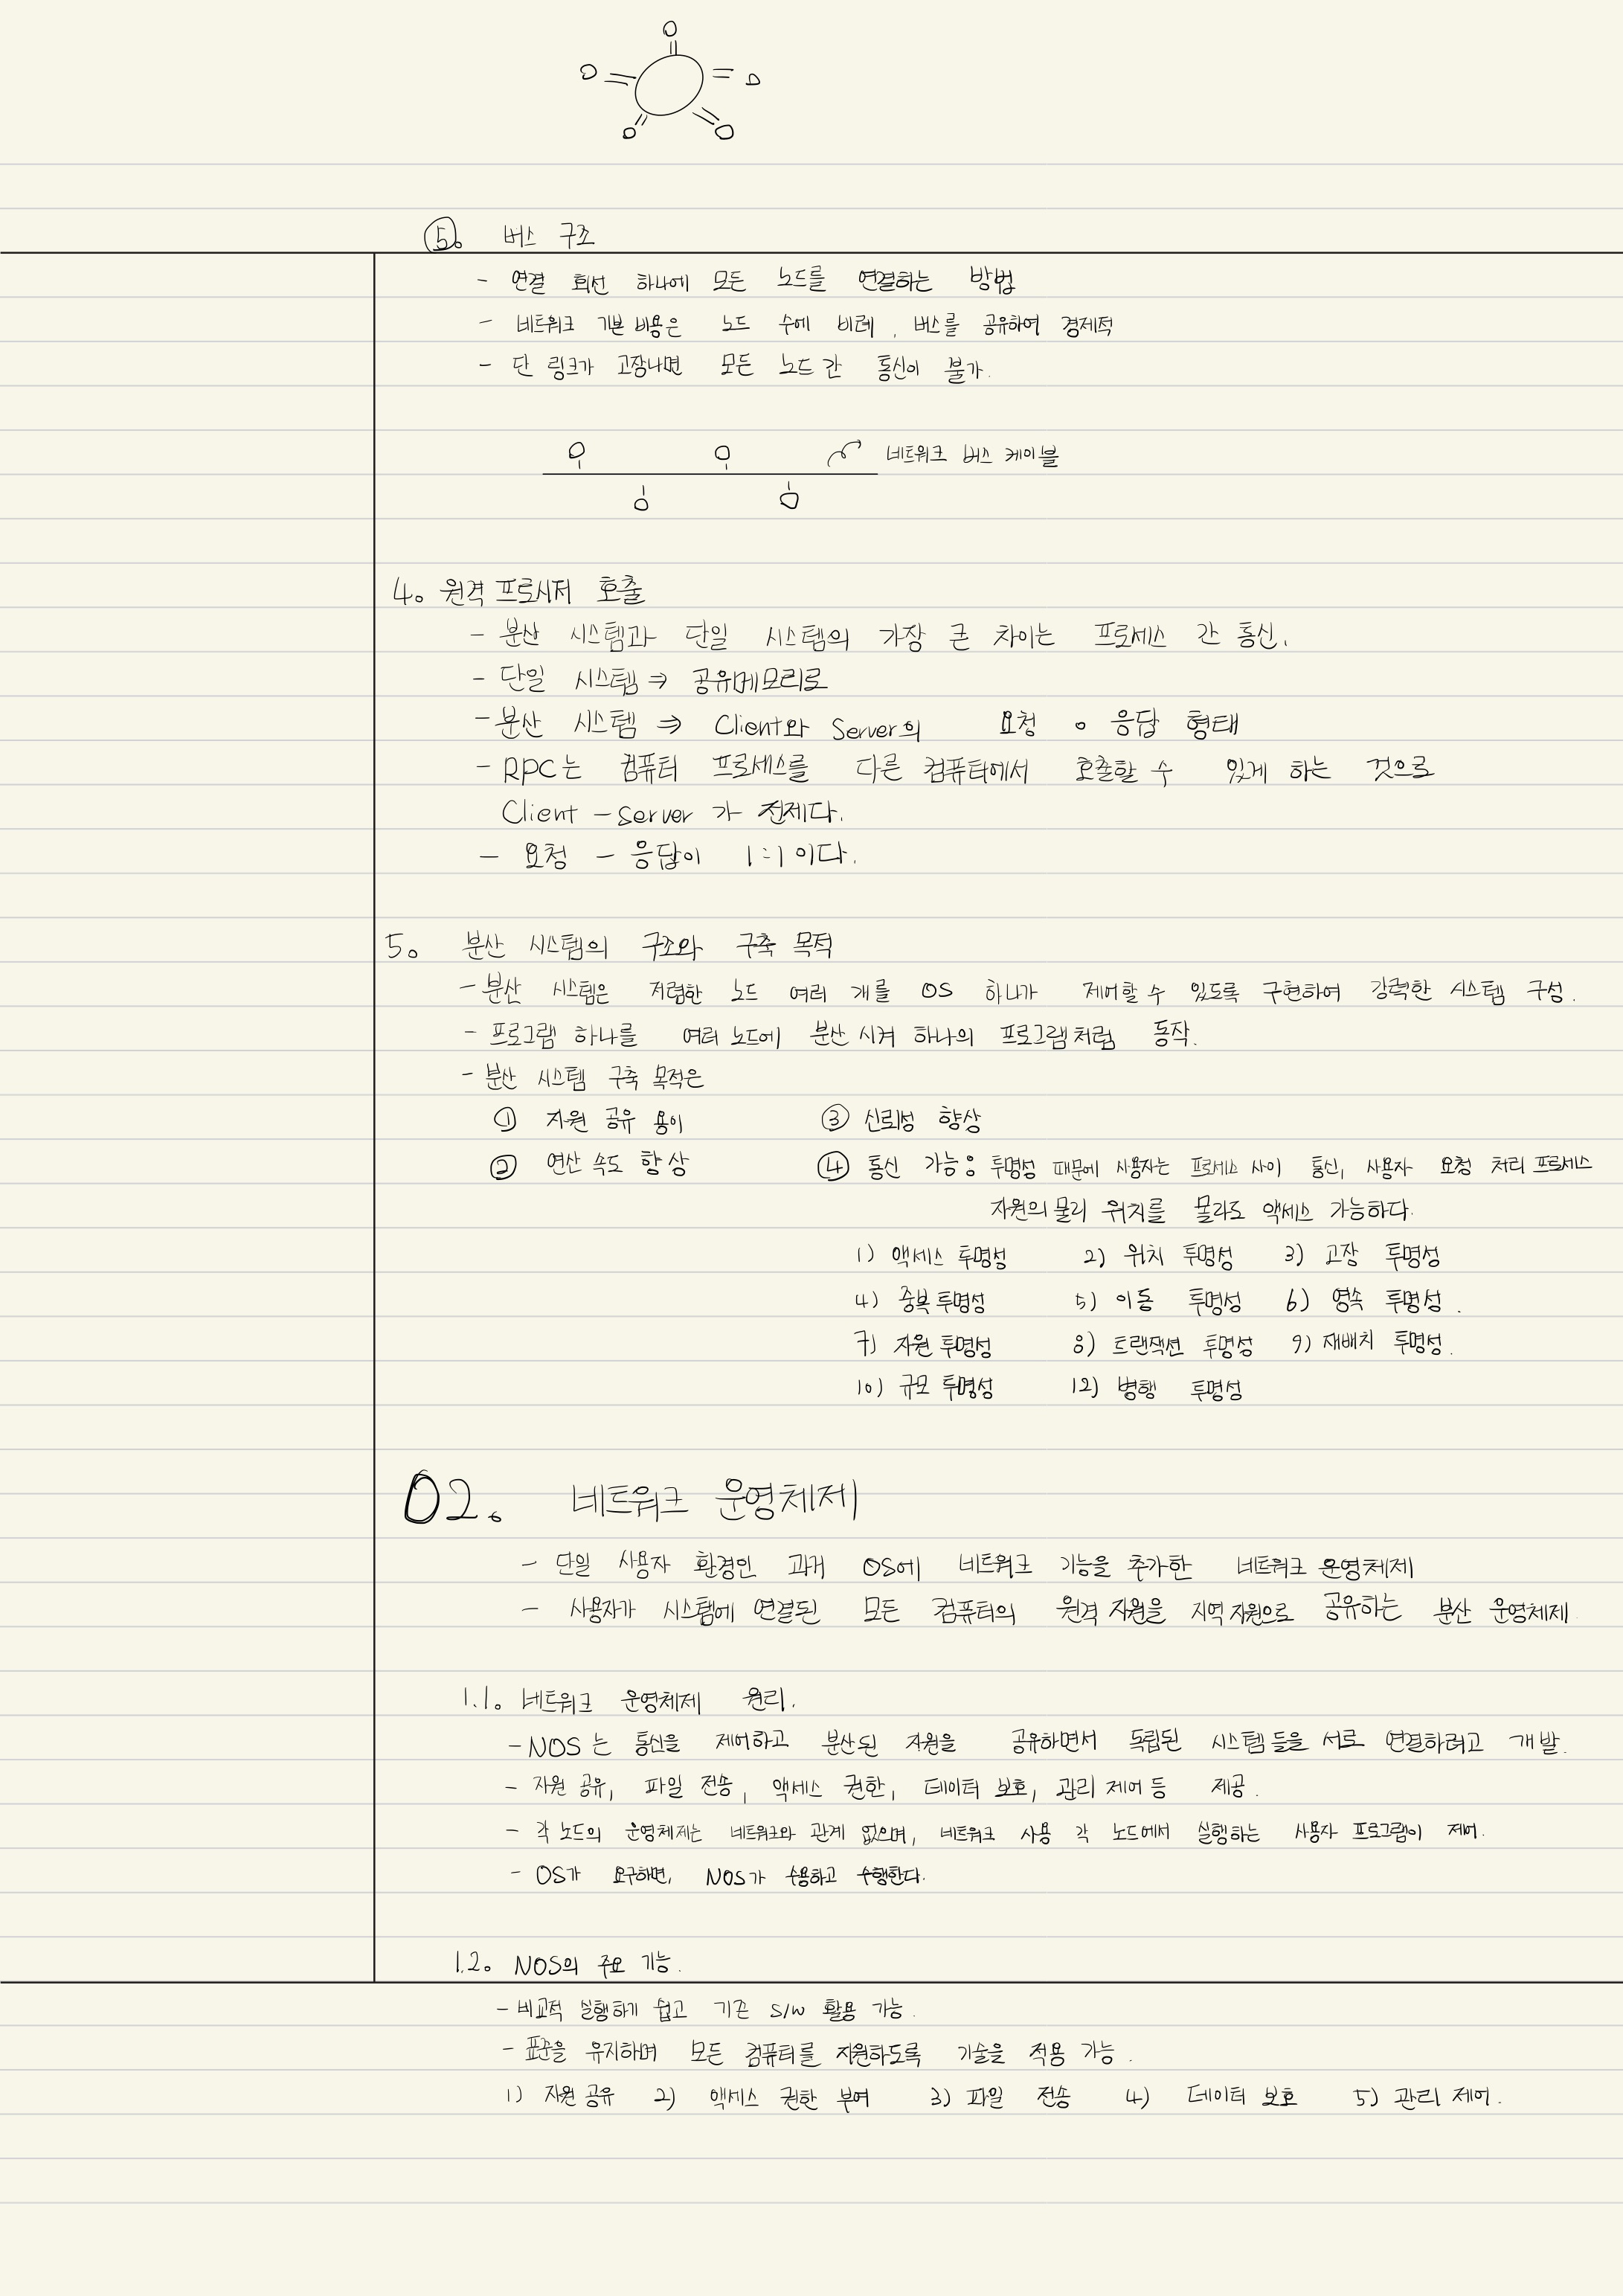 ⑤. 버스 구조
- 연결 회선 하나에 모든 노드를 연결하는 방법
- 네트워크 기본 비용은 노드 수에 비례, 버스를 공유하여 경제적
- 단 링크가 고장나면 모든 노드 간 통신이 불가.
네트워크 버스 케이블
4. 원격 프로시저 호출
- 분산 시스템과 단일 시스템의 가장 큰 차이는 프로세스 간 통신.
- 단일 시스템 ⇒ 공유메모리로
- 분산 시스템 ⇒ Client와 Server의 요청 · 응답 형태
- RPC는 컴퓨터 프로세스를 다른 컴퓨터에서 호출할 수 있게 하는 것으로
Client - Server 가 전제다.
- 요청 - 응답이 1:1 이다.
5. 분산 시스템의 구조와 구축 목적
- 분산 시스템은 저렴한 노드 여러 개를 OS 하나가 제어할 수 있도록 구현하여 강력한 시스템 구성.
- 프로그램 하나를 여러 노드에 분산 시켜 하나의 프로그램처럼 동작.
- 분산 시스템 구축 목적은
① 자원 공유 용이 ③ 신뢰성 향상
② 연산 속도 향상 ④ 통신 가능: 투명성 때문에 사용자는 프로세스 사이 통신, 사용자 요청 처리 프로세스
자원의 물리 위치를 몰라도 액세스 가능하다.
1) 액세스 투명성 2) 위치 투명성 3) 고장 투명성
4) 중복 투명성 5) 이동 투명성 6) 영속 투명성.
7) 자원 투명성 8) 트랜잭션 투명성 9) 재배치 투명성.
10) 규모 투명성 12) 병행 투명성
02. 네트워크 운영체제
- 단일 사용자 환경인 과거 OS에 네트워크 기능을 추가한 네트워크 운영체제
- 사용자가 시스템에 연결된 모든 컴퓨터의 원격 자원을 지역 자원으로 공유하는 분산 운영체제
1.1. 네트워크 운영체제 원리.
- NOS 는 통신을 제어하고 분산된 자원을 공유하면서 독립된 시스템들을 서로 연결하려고 개발.
- 자원 공유, 파일 전송, 액세스 권한, 데이터 보호, 관리 제어 등 제공.
- 각 노드의 운영체제는 네트워크와 관계 없으며, 네트워크 사용 각 노드에서 실행하는 사용자 프로그램이 제어.
- OS가 요구하면, NOS가 수용하고 수행한다.
1.2. NOS의 주요 기능.
- 비교적 실행하기 쉽고 기존 S/W 활용 가능.
- 표준을 유지하며 모든 컴퓨터를 지원하도록 기술을 적용 가능.
1) 자원 공유 2) 액세스 권한 부여 3) 파일 전송 4) 데이터 보호 5) 관리 제어.